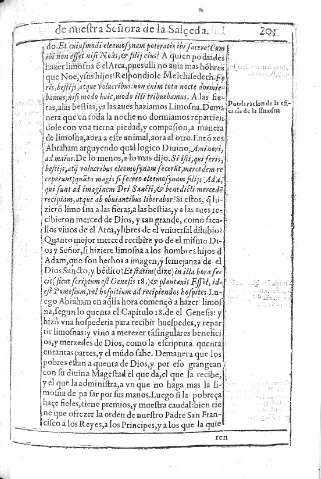 de nuestra Señora de la Salçeda. 205
do. Et cuiusmodi eleemosynam poteratis ibi facere? Cum
ibi non esset nisi Noas, & filij eius? A quien podiades
hazer limosna ē el Arca, pues alli no auia mas hōbres
que Noe, y sus hijos? Respondiole Melchisedech. Fe-
ris, bestijs, atque volucribus: non enim tota nocte dormie-
bamus, nisi modo huic, modo illi tribuebamus. A las fie-
ras, a las bestias, ya las aues haziamos Limosna. Dema
nera que en toda la noche no dormiamos repartien-
dole con vna tierna piedad, y compasion, a manera
de limosna, aora a este animal, aora al otro. Entōces
Abraham arguyendo quál logico Diuino.
ad maius. De lo menos, a lo mas dijo. Si isti, qui feris,
bestijs, atq; volucribus eleemosynam fecerūt, mercedem re
ceperunt; quāto magis si fecero eleemosynam filijs Ada,
qui sunt ad imaginem Dei Sancti, & benedicti mercedē
recipiam, atque ab obuiantibus liberabor? Si estos, q̃ hi-
zierō limosna a las fieras, a las bestias, y a las aues re-
cibieron merced de Dios, y tan grande, como saca-
llos viuos de el Arca, y libres de el vniuersal dilubio?
Quanto mejor merced recibire yo de el mismo Di-
os y Señor, si hiziere limosna a los hombres hijos d
Adam, que son hechos a imagen, y semejanza de el
Dios Sancto, y bēdito? Et statim (dize) in illa hora fe-
cit (sicut scriptum est Genesis 18.) & plantauit Essel, id-
est Pomœrium, vel hospitium ad recipiendos hospites. Lue
go Abraham en aq̄lla hora començò a hazer limos
na, segun lo quenta el Capitulo 18. de el Genesis: y
hizo vna hospederia para recibir huespedes, y repar
tir limosnas: y vino a merecer tā singulares benefici
os, y mercedes de Dios, como la escriptura quenta
en tantas partes, y el mūdo sabe. Demanera que los
pobres estan a quenta de Dios, y por eso grangean
con su diuina Magestad el que da, el que la recibe,
y el que la administra, a vn que no haga mas la li-
mosna de pasar por sus manos. Luego si la pobreça
haçe fieles, tiene premios, y muestra caudal: bien tie
ne que ofrezer la orden de nuestro Padre San Fran-
cisco a los Reyes, a los Principes, y a los que la quie
ren